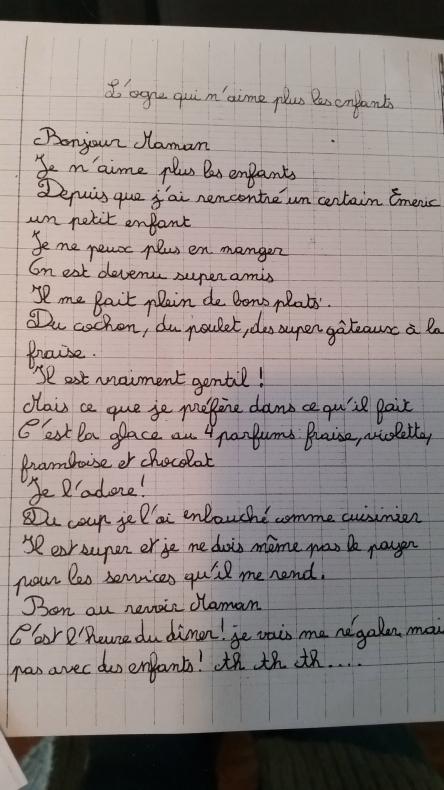 L'ogre qui n'aime plus les enfants
Bonjour Maman
Je n'aime plus les enfants
Depuis que j'ai rencontré un certain Émeric
un petit enfant
Je ne peux plus en manger
On est devenu super amis
Il me fait plein de bons plats.
Du cochon, du poulet, des super gâteaux à la
fraise.
Il est vraiment gentil !
Mais ce que je préfère dans ce qu'il fait
C'est la glace au 4 parfums fraise, violette,
framboise et chocolat
Je l'adore!
Du coup je l'ai enbauché comme cuisinier
Il est super et je ne dois même pas le payer
pour les services qu'il me rend.
Bon au revoir Maman
C'est l'heure du dîner! je vais me régaler mai
pas avec des enfants! ah ah ah....